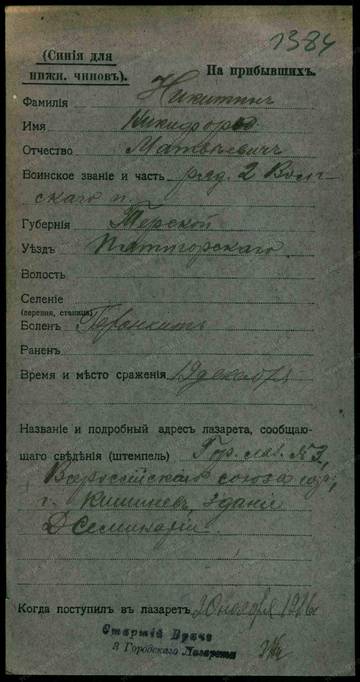 1384
(Синія для
нижн. чиновъ).
На прибывшихъ.
Фамилія Никитинъ
Имя Никифоръ
Отчество Матвѣевичъ
Воинское званіе и часть ряд. 2 Волг-
скаго п.
Губернія Терской
Уѣздъ Пятигорскаго
Волость
Селеніе
(деревня, станица)
Боленъ Бронхитъ
Раненъ
Время и мѣсто сраженія 19 декабря
Названіе и подробный адресъ лазарета, сообщаю-
щаго свѣдѣнія (штемпель) Гор. лаз. №3,
Всероссійскаго союза гор.,
г. Кишиневъ, зданіе
Д Семинаріи.
Когда поступилъ въ лазаретъ 20 ноября 1916
Старшій Врачъ
3 Городского Лазарета